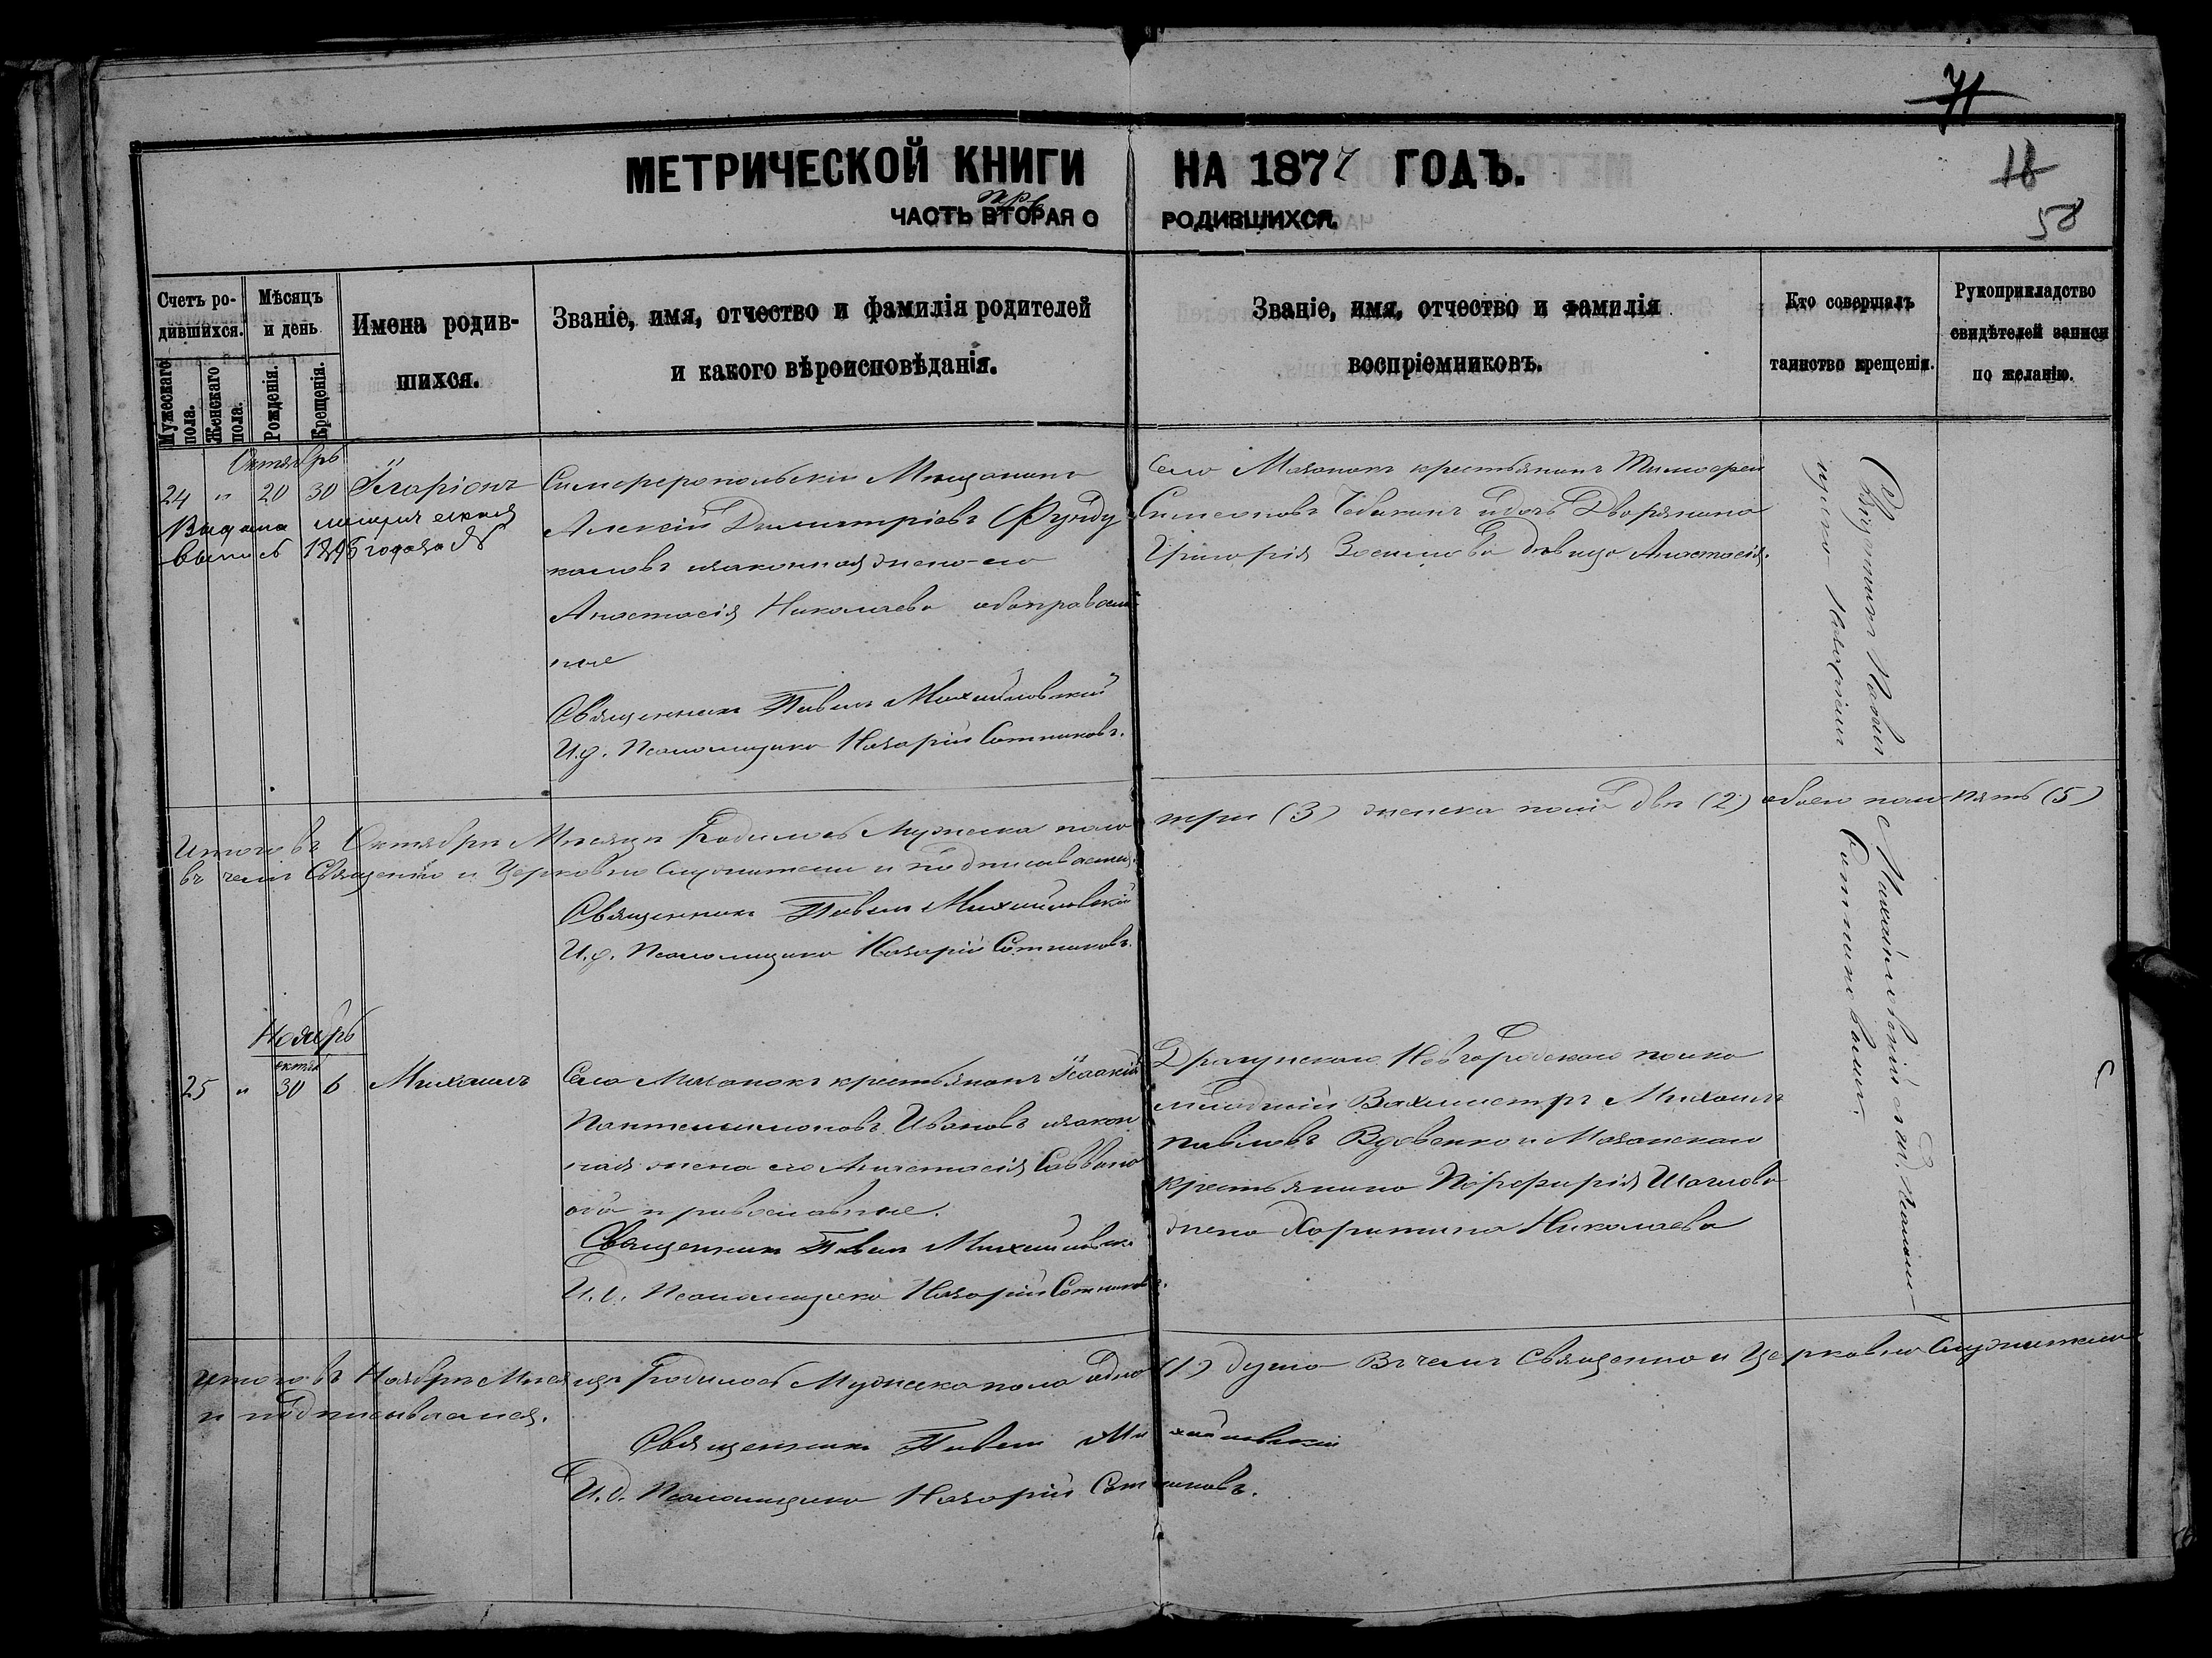 71
18
58
МЕТРИЧЕСКОЙ КНИГИ НА 1877 ГОДЪ.
ЧАСТЬ ВТОРАЯ О РОДИВШИХСЯ.
Счетъ ро-
дившихся.
Мужескаго пола.
Женскаго пола.
Мѣсяцъ
и день
Рожденія.
Крещенія.
Имена родив-
шихся.
Званіе, имя, отчество и фамилія родителей
и какого вѣроисповѣданія.
Званіе, имя, отчество и фамилія
воспріемниковъ.
Кто совершалъ
таинство крещенія.
Рукоприкладство
свидѣтелей записи
по желанію.
Октябрь
24 " 20 30 Иларіонъ
Выдана метрическая
выпись 1896 года
Симферопольскій Мѣщанинъ
Алексій Димитріевъ Фунду
каловъ изаконная жена его
Анастасія Николаева обаправослав
ные
Священникъ Павелъ Михайловскій
И.д. Псаломщика Назарій Сотниковъ.
Села Мазанокъ крестьянинъ Тимофей
Симеоновъ идочь Дворянина
Григорія дѣвица Анастасія.
Священникъ Павелъ Михайловскій съ и.д. Псалом-
щика Назаріемъ Сотниковымъ.
Итого въ Октябрѣ Мѣсяцѣ Родилось Мужеска пола три (3) женска пола двѣ (2) обоего пола пять (5)
въ чемъ Священно и Церковно служители и подписываемся.
Священникъ Павелъ Михайловскій
И.д. Псаломщика Назарій Сотниковъ.
Ноябрь
октяб
25 " 30 6 Михаилъ
Села Мазанокъ крестьянинъ Исаакій
Пантелеимоновъ Ивановъ изакон
ная жена его Анастасія Саввина
оба православные.
Священникъ Павелъ Михайловскій
И.д. Псаломщика Назарій Сотниковъ.
Драгунскаго Новгородскаго полка
младшій Вахмистръ Михаилъ
Павловъ Вдовенко и Мазанскаго
крестьянина Порфирія
жена Харитина Николаева
Итого въ Ноябрѣ Мѣсяцѣ Родилось Мужеска пола одна (1) душа Въ чемъ Священно и Церковно Служители
и подписываемся.
Священникъ Павелъ Михайловскій
И.д. Псаломщика Назарій Сотниковъ.